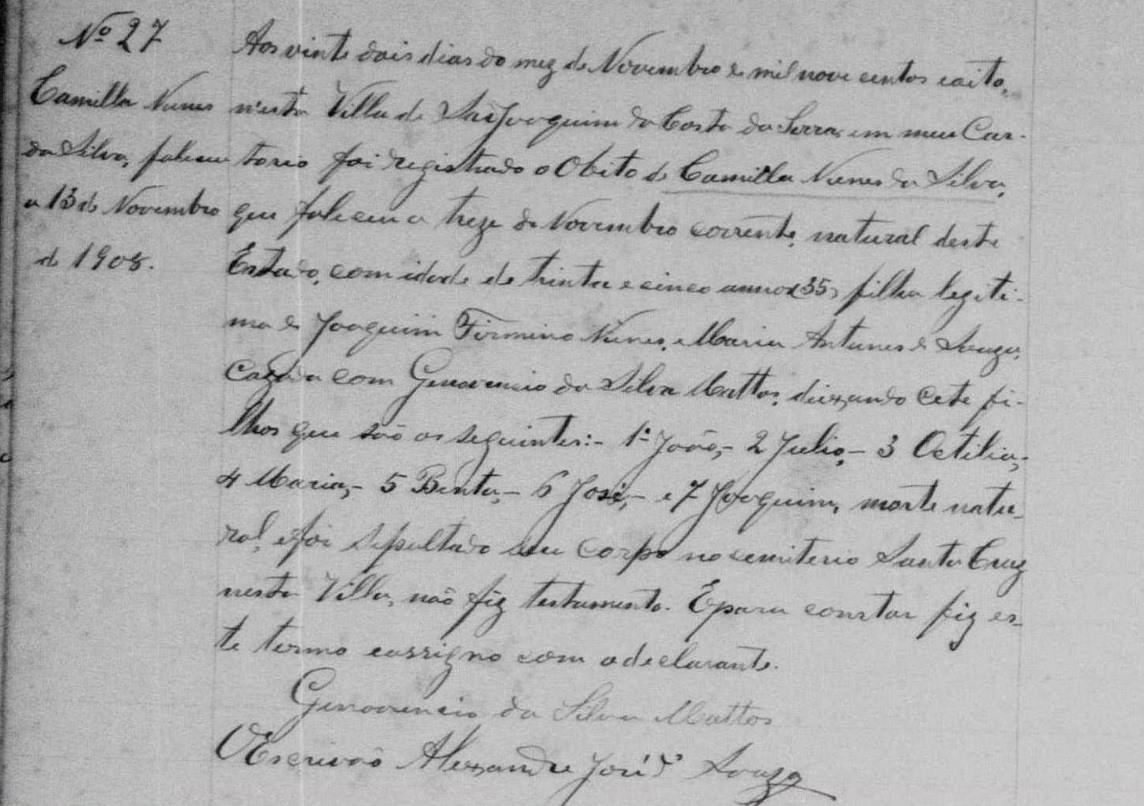 Nº 27
Camilla Nunes
da Silva, faleceu
a 13 de Novembro
de 1908.
Aos vinte dois dias do mez de Novembro de mil nove centos e oito,
n'esta Villa de São Joaquim da Costa da Serra, em meu Car-
torio foi registrado o Obito de Camilla Nunes da Silva,
que faleceu a treze de Novembro corrente, natural deste
Estado, com idade de trinta e cinco annos (35), filha legiti-
ma de Joaquim Firmino Nunes, e Maria Antunes de Souza,
Cazada com Genovencio da Silva Mattos, deixando Cete fi-
lhos que são os seguintes:- 1º João,- 2 Julio,- 3 Octilia,-
4 Maria,- 5 Bento,- 6 José,- e 7 Joaquim, morte natu-
ral, e foi sepultado seu corpo no cemiterio Santa Cruz
nesta Villa, não fiz testamento. E para constar fiz es-
te termo e assigno com o declarante.
Genovencio da Silva Mattos
O Escrivão Alexandre José d' Souza